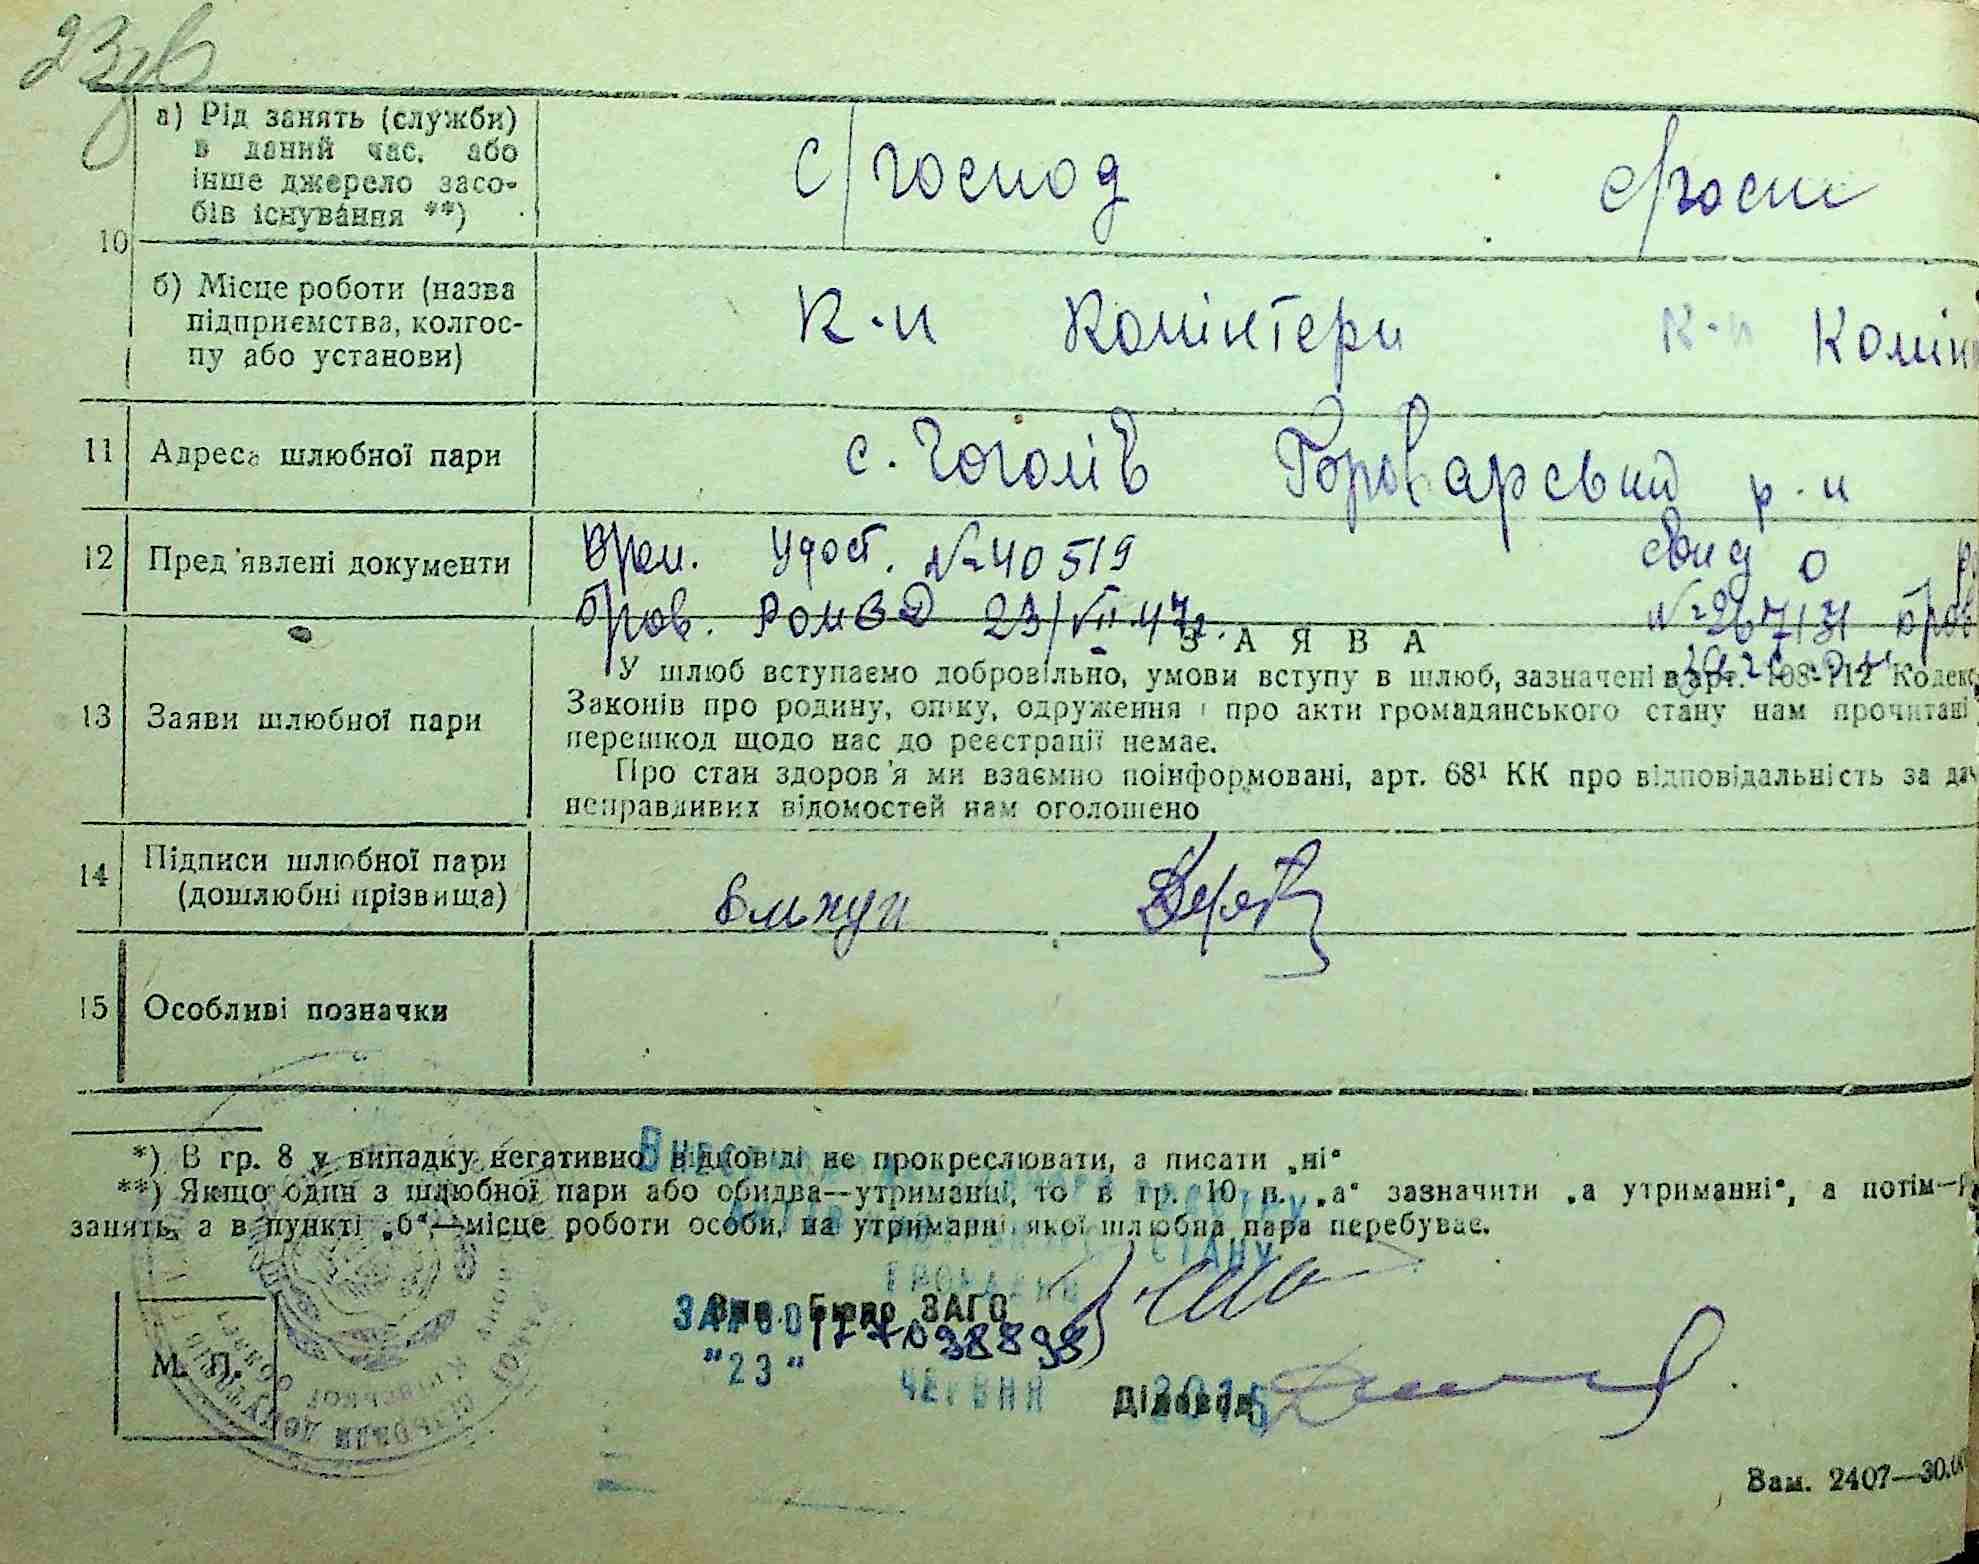 а) Рід занять (служби)
в даний час, або
інше джерело засо-
бів існування **)
с/господ
с/госп
10
б) Місце роботи (назва
підприємства, колгос-
пу або установи)
к-п Комінтерн
к-п Комін
11 Адреса шлюбної пари
с. Гоголів Броварський р-н
12 Пред'явлені документи
Врем. Удост. № 40519
Свид о
Бров. РОМВД 23/VII.47г.
№ 267131 Бров
З А Я В А
13 Заяви шлюбної пари
У шлюб вступаємо добровільно, умови вступу в шлюб, зазначені в арт. 108-112 Кодекс
Законів про родину, опіку, одруження і про акти громадянського стану нам прочитані
перешкод щодо нас до реєстрації немає.
Про стан здоров'я ми взаємно поінформовані, арт. 68¹ КК про відповідальність за дач
неправдивих відомостей нам оголошено
14 Підписи шлюбної пари
(дошлюбні прізвища)
15 Особливі позначки
*) В гр. 8 у випадку негативно відповіді не прокреслювати, а писати „ні“
**) Якщо один з шлюбної пари або обидва—утриманці, то в гр. 10 п. „а“ зазначити „а утриманні“, а потім—
занять, а в пункті „б“—місце роботи особи, на утриманні якої шлюбна пара перебуває.
СТАНУ
Бюро ЗАГС
"23" ЧЕРВНЯ 2015
М. П.
Діловод
Зам. 2407—30.